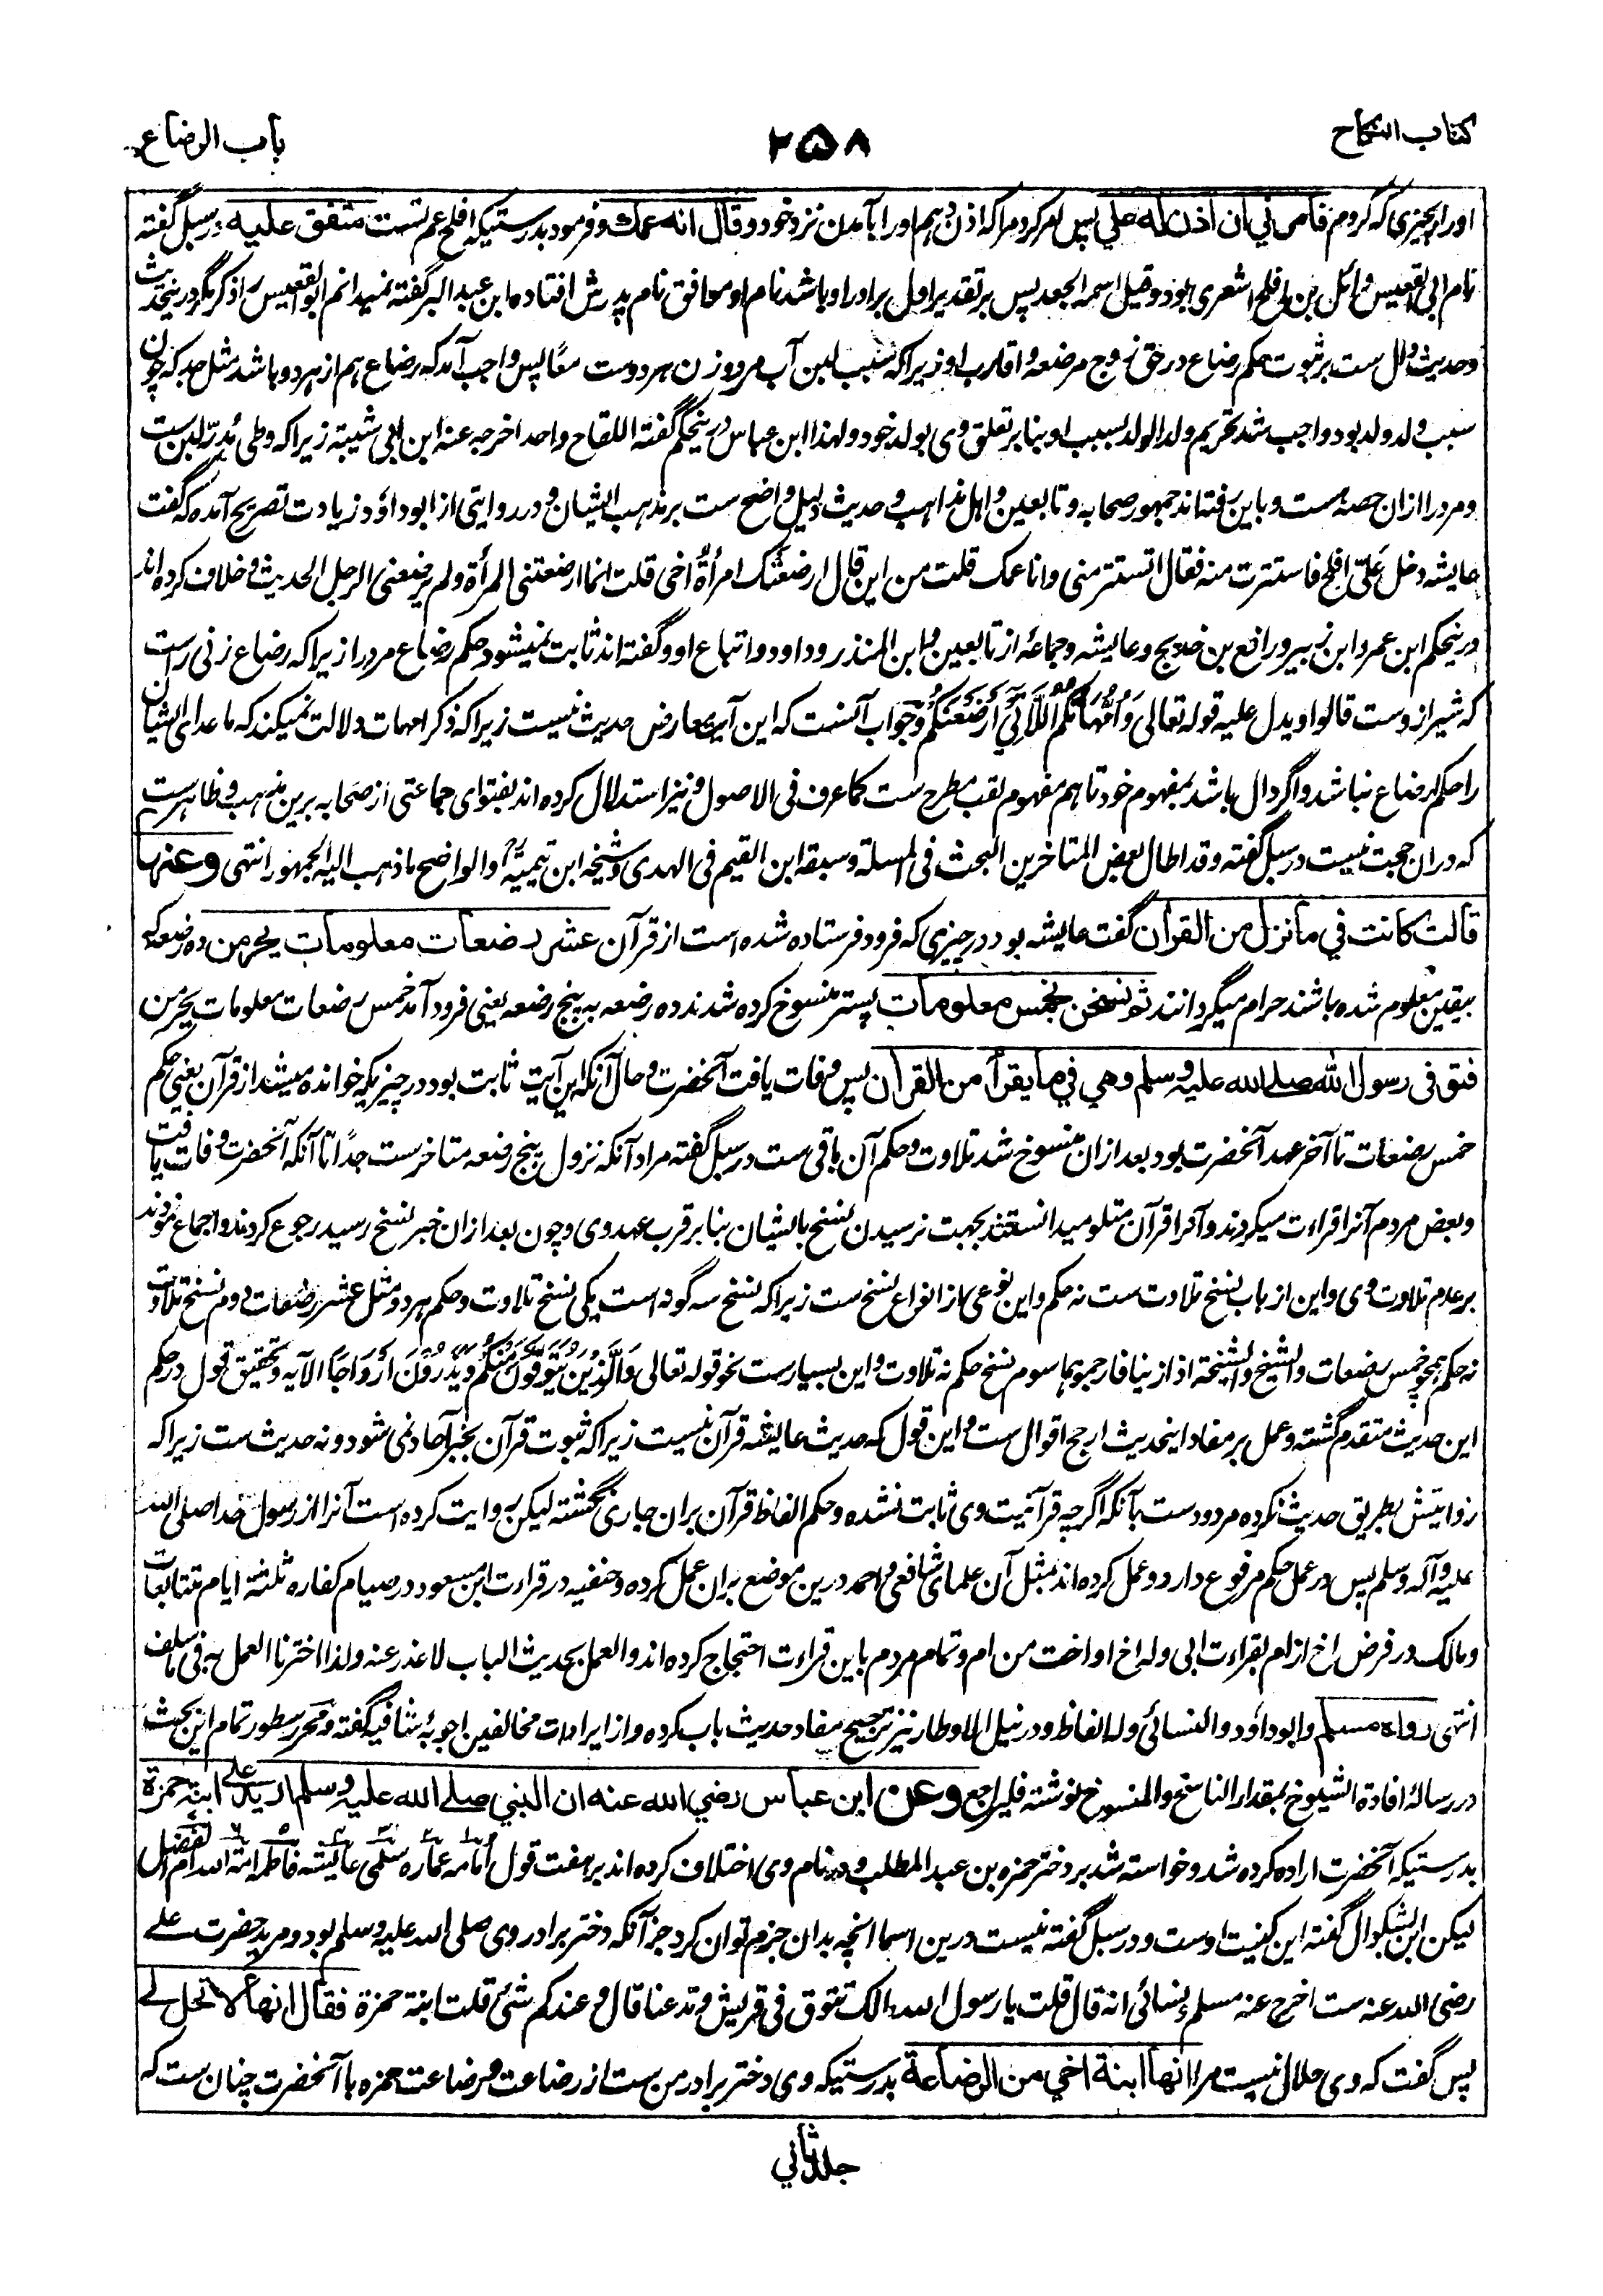 کتاب النکاح
۲۵۸
باب الرضاع
اورا بچیزی که کردم فامرني ان اذن له علي پس امر کرد مرا که اذن دهم اورا بآمدن نزد خود وقال انه عمك وفرمود بدرستیکه افلح عم تست متفق علیه در سبل گفته
نام ابی القعیس وائل بن افلح اشعری بود وقیل اسمه الجعد پس بر تقدیر اول برادر او باشد نام او موافق نام پدرش افتاده ابن عبد البر گفته نمیدانم ابو القعیس را ذکر مگر درینحدیث
وحدیث دال ست بر ثبوت حکم رضاع در حق زوج مرضعه واقارب او زیرا که سبب لبن آب مرد وزن هر دوست معًا پس واجب آمد که رضاع هم از هر دو باشد مثل جد که چون
سبب ولد ولد بود واجب شد تحریم ولد الولد بسبب او بنابر تعلق وی بولد خود ولهذا ابن عباس درینحکم گفته اللقاح واحد اخرجه عنه ابن ابی شیبة زیرا که وطی مُدِرّ لبن ست
ومرد را ازان حصه ست وباین رفته اند جمهور صحابه وتابعین واهل مذاهب وحدیث دلیل واضح ست بر مذهب ایشان ودر روایتی از ابو داؤد زیادت تصریح آمده که گفت
عایشه دخل عَلیَّ افلح فاستترت منه فقال اتستترین منی وانا عمک قلت من این قال ارضعتک امرأةُ اخی قلت انما ارضعتنی المرأة ولم یرضعنی الرجل الحدیث وخلاف کرده اند
درینحکم ابن عمر وابن زبیر ورافع بن خدیج وعایشه وجماعهٔ از تابعین وابن المنذر وداود واتباع او وگفته اند ثابت نمیشود حکم رضاع مرد را زیرا که رضاع زنی راست
که شیر از وست قالوا ویدل علیه قوله تعالی وَأُمَّهَاتُكُمُ اللَّاتِي أَرْضَعْنَكُمْ وجواب آنست که این آیه معارض حدیث نیست زیرا که ذکر امهات دلالت نمیکند که ماعدای ایشان
را حکم رضاع نباشد واگر دال باشد بمفهوم خود تا هم مفهوم لقب مطرح ست کما عرف فی الاصول ونیز استدلال کرده اند بفتوای جماعتی از صحابه برین مذهب وظاهرست
که دران حجت نیست در سبل گفته وقد اطال بعض المتاخرین البحث فی المسئلة وسبقه ابن القیم فی الهدی وشیخه ابن تیمیةؒ والواضح ما ذهب الیه الجمهور انتهی وعنها
قالت کانت في ما نزل من القرآن گفت عایشه بود در چیزی که فرود فرستاده شده است از قرآن عشر رضعات معلومات یحرمن ده رضعه که
بیقین معلوم شده باشند حرام میگردانند ثم نسخن بخمس معلومات پستر منسوخ کرده شدند ده رضعه به پنج رضعه یعنی فرود آمد خمس رضعات معلومات یحرمن
فتوفی رسول الله صلے الله علیه وسلم وهي في ما یقرأ من القرآن پس وفات یافت آنحضرت وحال آنکه این آیت ثابت بود در چیزیکه خوانده میشد از قرآن یعنی حکم
خمس رضعات تا آخر عهد آنحضرت بود بعد ازان منسوخ شد تلاوت وحکم آن باقی ست در سبل گفته مراد آنکه نزول پنج رضعه متاخرست جداً تا آنکه آنحضرت وفات یافت
وبعض مردم آنرا قراءت میکردند وآنرا قرآن متلو میدانستند بجهت نرسیدن نسخ بایشان بنابر قرب عهد وی وچون بعد ازان خبر نسخ رسید رجوع کردند واجماع نمودند
بر عدم تلاوت وی واین از باب نسخ تلاوت ست نه حکم واین نوعی از انواع نسخ ست زیرا که نسخ سه گونه است یکی نسخ تلاوت وحکم هر دو مثل عشر رضعات دوم نسخ تلاوت
نه حکم همچو خمس رضعات والشیخ والشیخة اذا زنیا فارجموهما سوم نسخ حکم نه تلاوت واین بسیارست نحو قوله تعالی وَالَّذِينَ يُتَوَفَّوْنَ مِنْكُمْ وَيَذَرُونَ أَزْوَاجًا الآیه وتحقیق قول در حکم
این حدیث متقدم گشته وعمل بر مفاد اینحدیث ارجح اقوال ست واین قول که حدیث عایشه قرآن نیست زیرا که ثبوت قرآن بخبر آحاد نمی شود ونه حدیث ست زیرا که
روایتش بطریق حدیث نکرده مردودست بآنکه اگرچه قرآنیت وی ثابت نشده وحکم الفاظ قرآن بران جاری نگشته لیکن روایت کرده است آنرا از رسول خدا صلی الله
علیه وآله وسلم پس در عمل حکم مرفوع دارد وعمل کرده اند بمثل آن علما شافعی واحمد درین موضع بران عمل کرده وحنفیه در قراءت ابن مسعود در صیام کفاره ثلثة ایام متتابعات
ومالک در فرض اخ از ام بقراءت ابی وله اخ او اخت من ام وتمام مردم باین قراءت احتجاج کرده اند والعمل بحدیث الباب لا عذر عنه ولذا اخترنا العمل به فی ما سلف
انتهی رواه مسلم وابو داؤد والنسائی وله الفاظ ودر نیل الاوطار نیز ترجیح مفاد حدیث باب کرده واز ایرادات مخالفین اجوبهٔ شافیه گفته ومحرر سطور تمام این بحث
در رسالهٔ افادة الشیوخ بمقدار الناسخ والمنسوخ نوشته فلیراجع وعن ابن عباس رضي الله عنه ان النبي صلے الله علیه وسلم ارید علی ابنة حمزة
بدرستیکه آنحضرت اراده کرده شد وخواسته شد بر دختر حمزه بن عبد المطلب ودر نام وی اختلاف کرده اند بر هفت قول امامه۱ عماره۲ سلمی۳ عایشه۴ فاطمه۵ امة الله۶ ام الفضل۷
لیکن ابن بشکوال گفته این کنیت اوست ودر سبل گفته نیست درین اسما آنچه بدان جزم توان کرد جز آنکه دختر برادر وی صلی الله علیه وسلم بود ومرید حضرت علے
رضی الله عنه ست اخرج عنه مسلم ونسائی انه قال قلت یا رسول الله مالک تتوق فی قریش وتدعنا قال وعندکم شئ قلت ابنة حمزة فقال انها لا تحل لے
پس گفت که وی حلال نیست مرا انها ابنة اخي من الرضاعة بدرستیکه وی دختر برادر من ست از رضاعت ورضاعت حمزه با آنحضرت چنان ست که
جلد ثاني